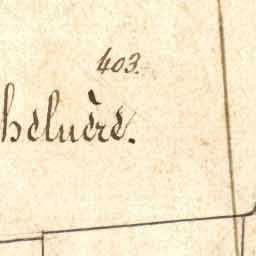 403.
heluère.